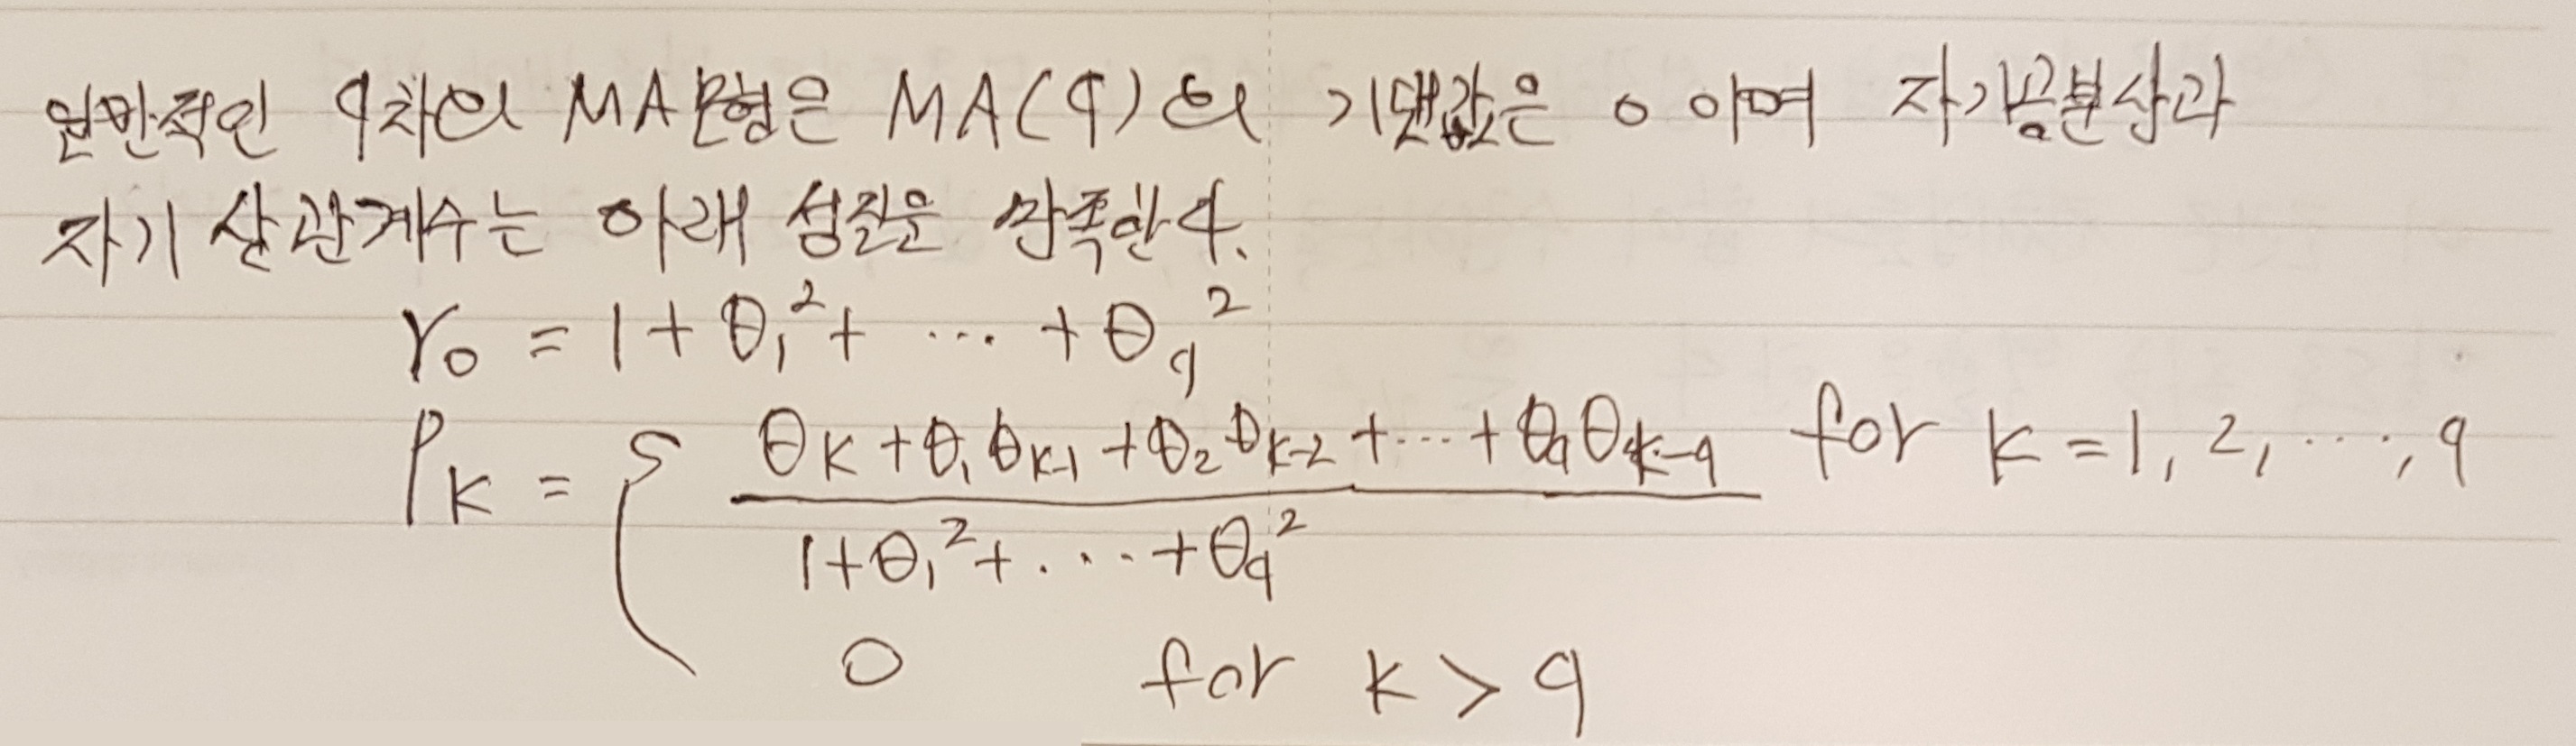 일반적인 q차의 MA모형은 MA(q)의 기댓값은 0 이며 자기공분산과
자기 상관계수는 아래 성질을 만족한다.
γ₀ = 1 + θ₁² + ··· + θq²
ρk = { (θk + θ₁θk-1 + θ₂θk-2 + ··· + θqθk-q) / (1 + θ₁² + ··· + θq²) for k = 1, 2, ···, q
0 for k > q